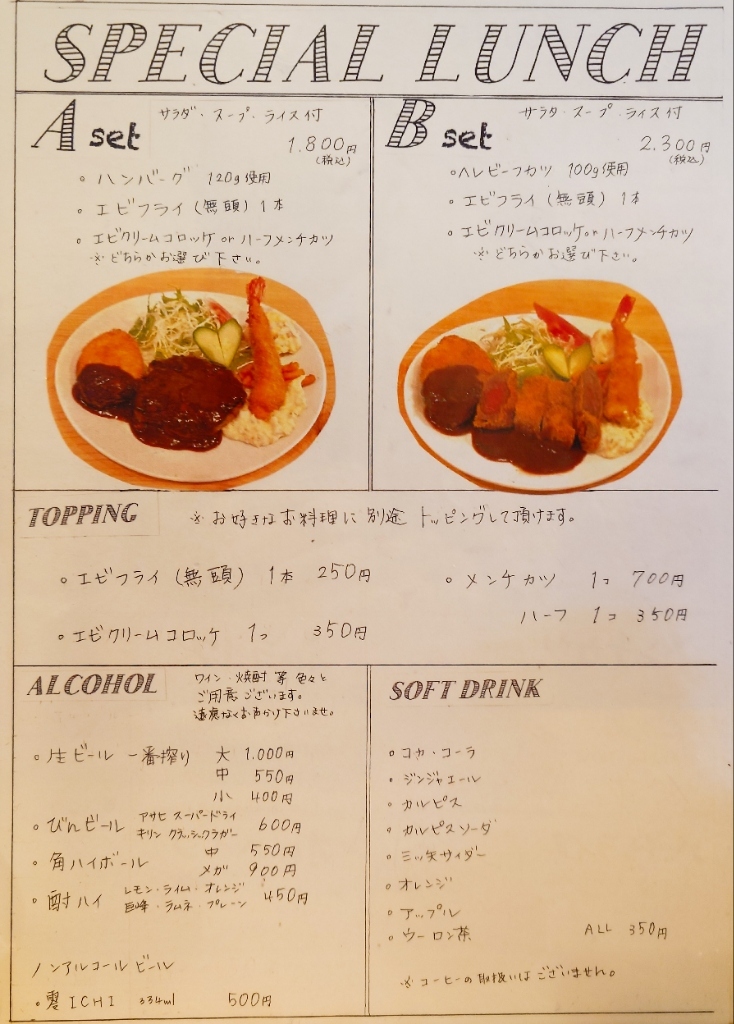 SPECIAL LUNCH
A set
サラダ・スープ・ライス付
1.800円
(税込)
・ハンバーグ 120g使用
・エビフライ(無頭) 1本
・エビクリームコロッケ or ハーフメンチカツ
※どちらかお選び下さい。
B set
サラダ・スープ・ライス付
2.300円
(税込)
・ヘレビーフカツ 100g使用
・エビフライ(無頭) 1本
・エビクリームコロッケor ハーフメンチカツ
※どちらかお選び下さい。
TOPPING
※お好きなお料理に別途トッピングして頂けます。
・エビフライ(無頭) 1本 250円
・エビクリームコロッケ 1コ 350円
・メンチカツ 1コ 700円
ハーフ 1コ 350円
ALCOHOL
ワイン・焼酎 等 色々と
ご用意ございます。
遠慮なくお声かけ下さいませ。
・生ビール 一番搾り 大 1.000円
中 550円
小 400円
・びんビール アサヒ スーパードライ
キリン クラッシックラガー 600円
・角ハイボール 中 550円
メガ 900円
・酎ハイ レモン・ライム・オレンジ
巨峰・ラムネ・プレーン 450円
ノンアルコールビール
・零ICHI 334ml 500円
SOFT DRINK
・コカ・コーラ
・ジンジャエール
・カルピス
・カルピスソーダ
・三ッ矢サイダー
・オレンジ
・アップル
・ウーロン茶 ALL 350円
※コーヒーの取扱いはございません。